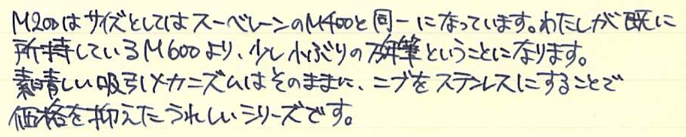 M200はサイズとしてはスーベレーンのM400と同一になっています。わたしが既に
所持しているM600より、少し小ぶりの万年筆ということになります。
素晴しい吸引メカニズムはそのままに、ニブをステンレスにすることで
価格を抑えたうれしいシリーズです。